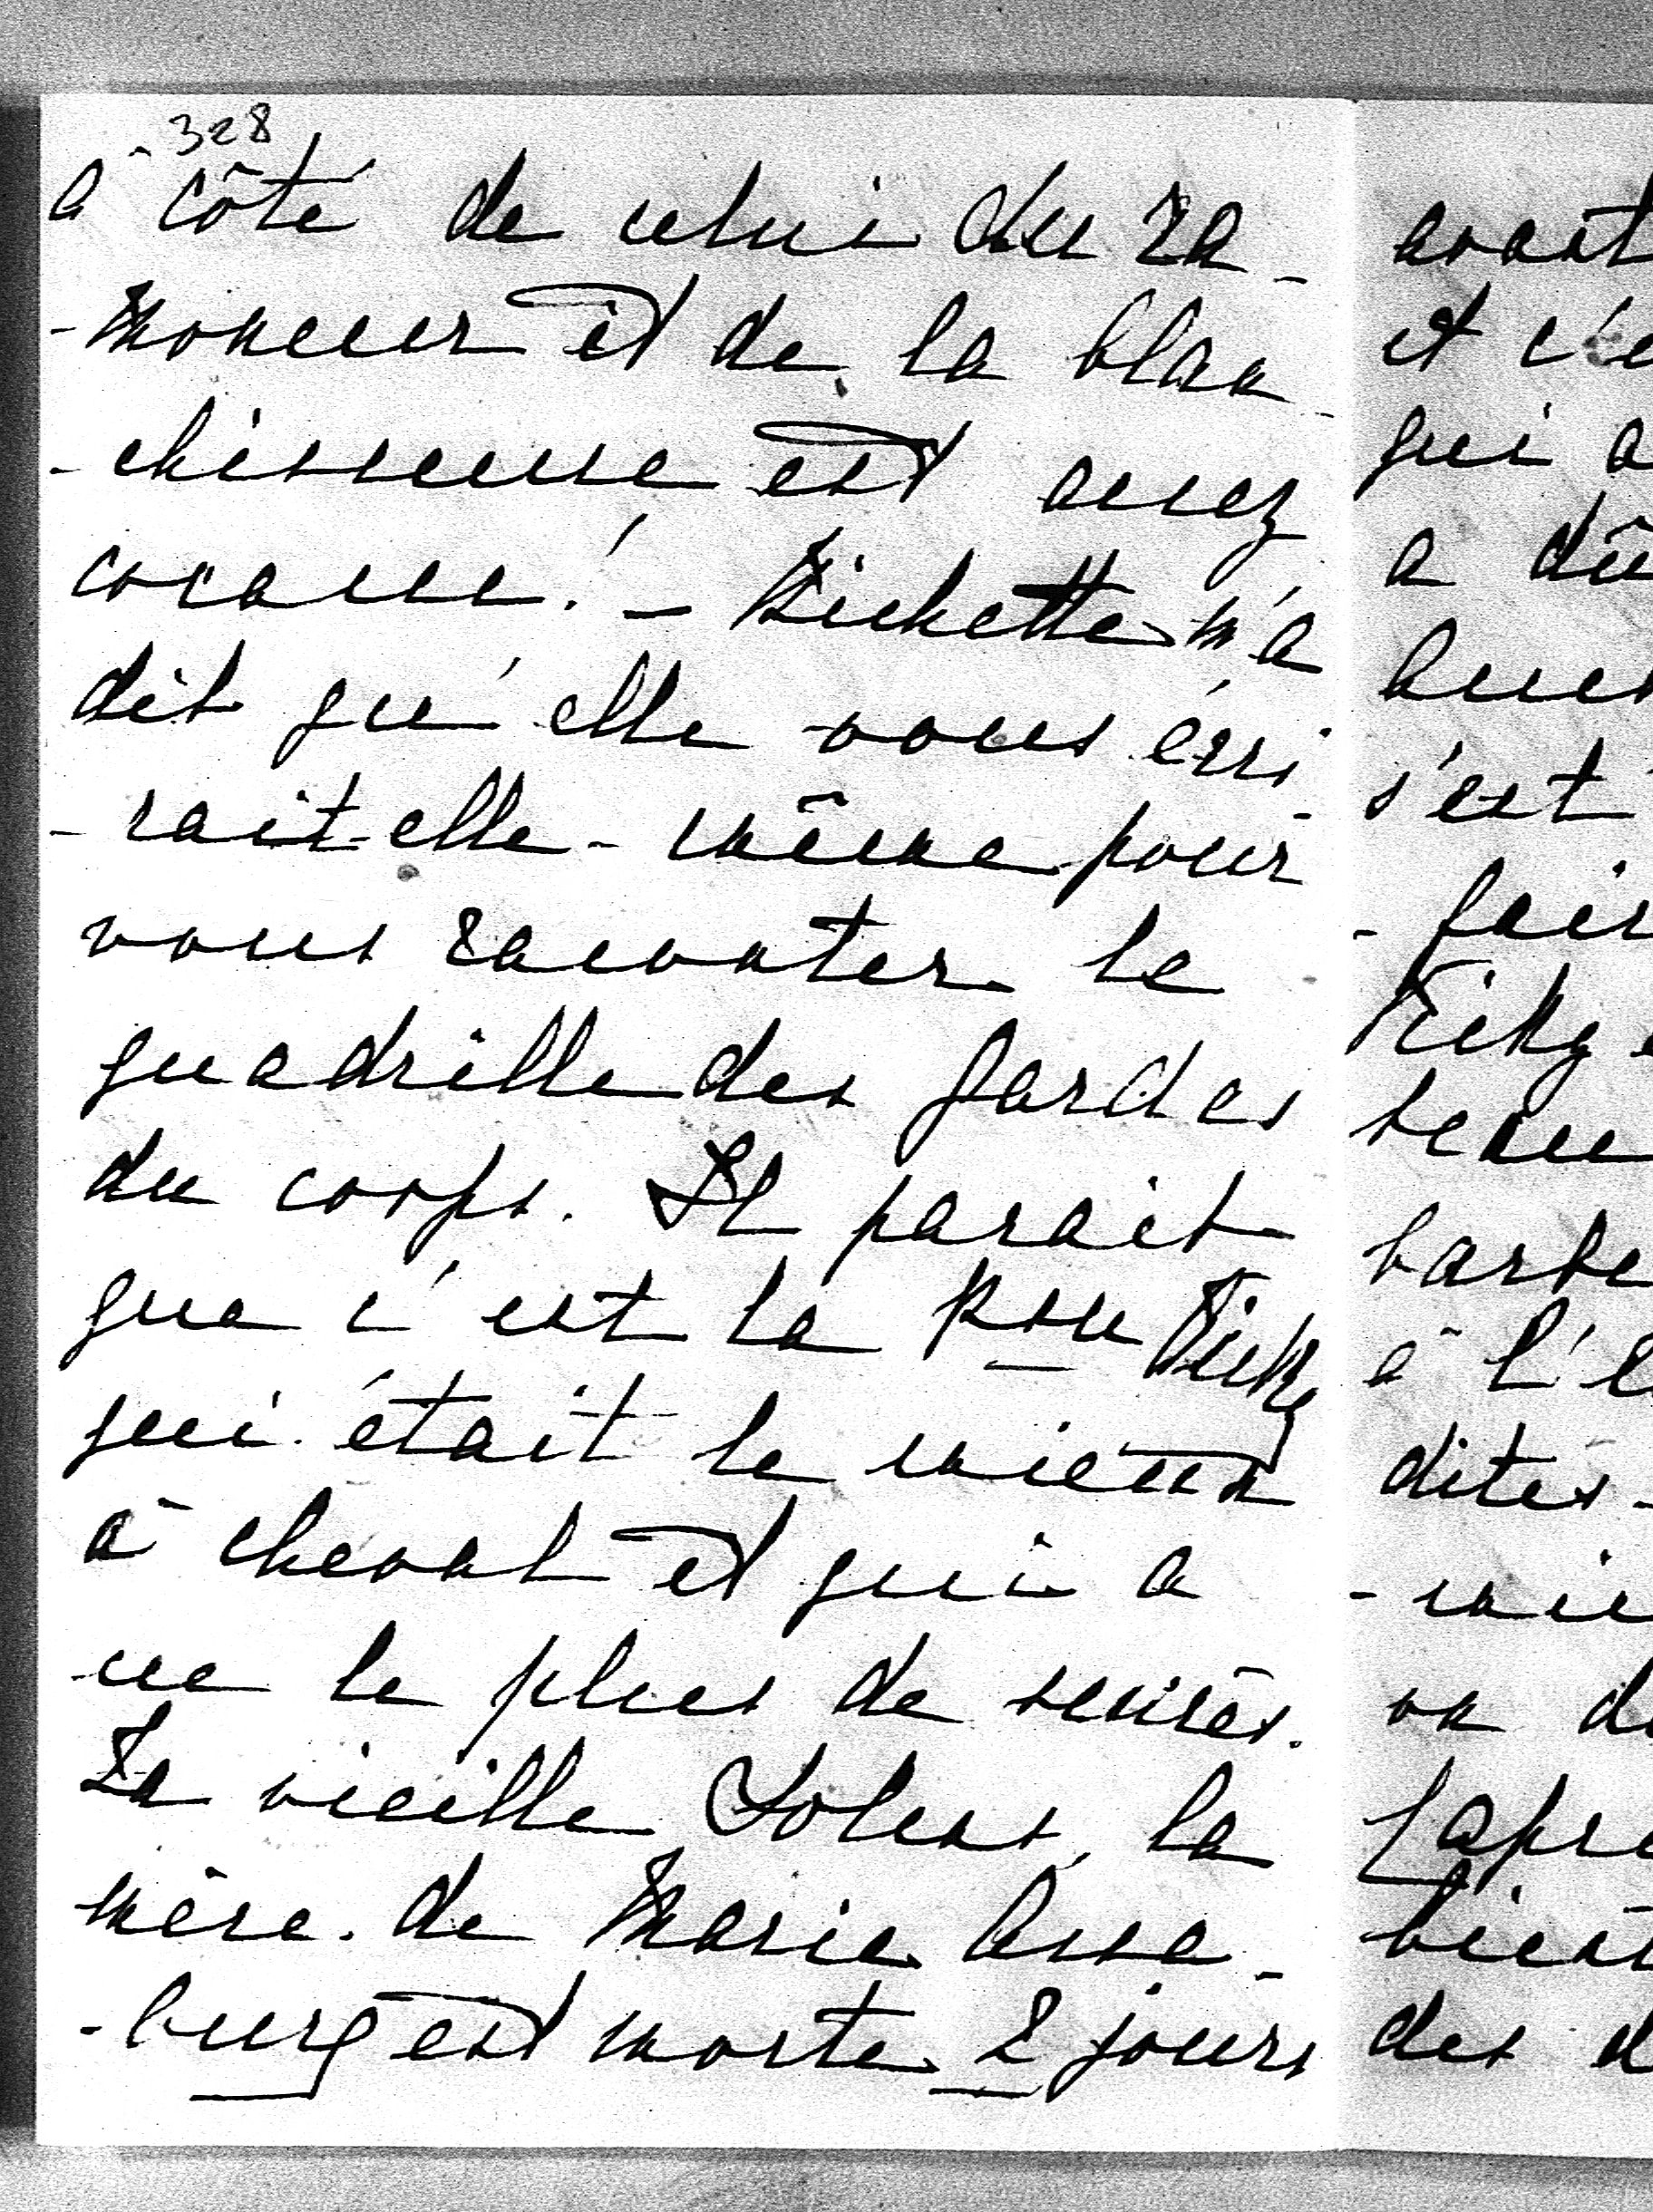 328
à côté de celui du ra-
-moneur et de la blan-
-chisseuse est assez
cocasse! - Dickette m'a
dit qu'elle vous écri-
-rait elle-même pour
vous raconter le
quadrille des gardes
du corps. Il parait
que c'est la Psse Vicky
qui était le mieux
à cheval et qui a
eu le plus de succès.
La vieille Solms, la
mère de Marie Asse-
-burg est morte 2 jours
avant
et c'e
qui a
a dû
s'est
-fair
Vicky
barbe
à l'e
dites-
-mie
on d
des d